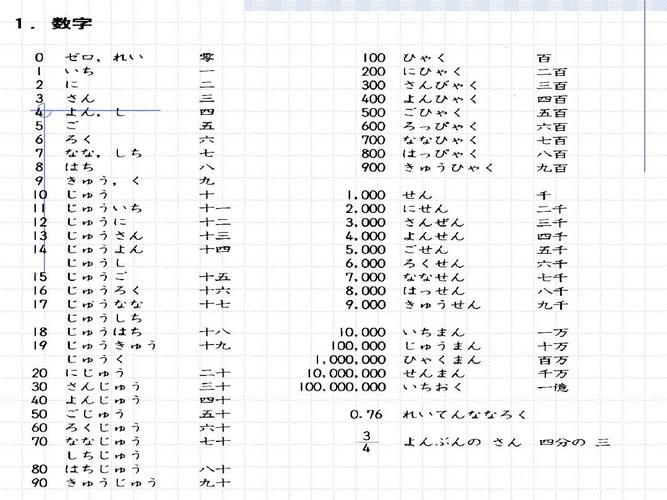 1. 数字
0 ゼロ, れい 零
1 いち 一
2 に 二
3 さん 三
4 よん, し 四
5 ご 五
6 ろく 六
7 なな, しち 七
8 はち 八
9 きゅう, く 九
10 じゅう 十
11 じゅういち 十一
12 じゅうに 十二
13 じゅうさん 十三
14 じゅうよん 十四
じゅうし
15 じゅうご 十五
16 じゅうろく 十六
17 じゅうなな 十七
じゅうしち
18 じゅうはち 十八
19 じゅうきゅう 十九
じゅうく
20 にじゅう 二十
30 さんじゅう 三十
40 よんじゅう 四十
50 ごじゅう 五十
60 ろくじゅう 六十
70 ななじゅう 七十
しちじゅう
80 はちじゅう 八十
90 きゅうじゅう 九十
100 ひゃく 百
200 にひゃく 二百
300 さんびゃく 三百
400 よんひゃく 四百
500 ごひゃく 五百
600 ろっぴゃく 六百
700 ななひゃく 七百
800 はっぴゃく 八百
900 きゅうひゃく 九百
1,000 せん 千
2,000 にせん 二千
3,000 さんぜん 三千
4,000 よんせん 四千
5,000 ごせん 五千
6,000 ろくせん 六千
7,000 ななせん 七千
8,000 はっせん 八千
9,000 きゅうせん 九千
10,000 いちまん 一万
100,000 じゅうまん 十万
1,000,000 ひゃくまん 百万
10,000,000 せんまん 千万
100,000,000 いちおく 一億
0.76 れいてんななろく
3/4 よんぶんの さん 四分の 三